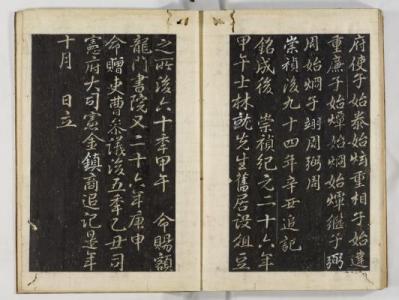 府使子始泰始炫重相子始達
重廉子始煒始炯始燁繼子弼
周始炯子翊周弼周
崇禎後九十四年辛丑追記
銘成後 崇禎紀元二十六年
甲午士林就先生舊居設俎豆
之所後六十季甲午 命賜額
龍門書院又二十六年庚申
命贈吏曹參議後五季乙丑司
憲府大司憲金鎮商追記是年
十月 日立